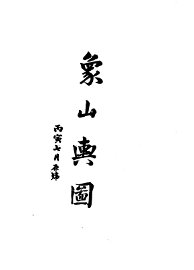 象山輿圖
丙寅七月